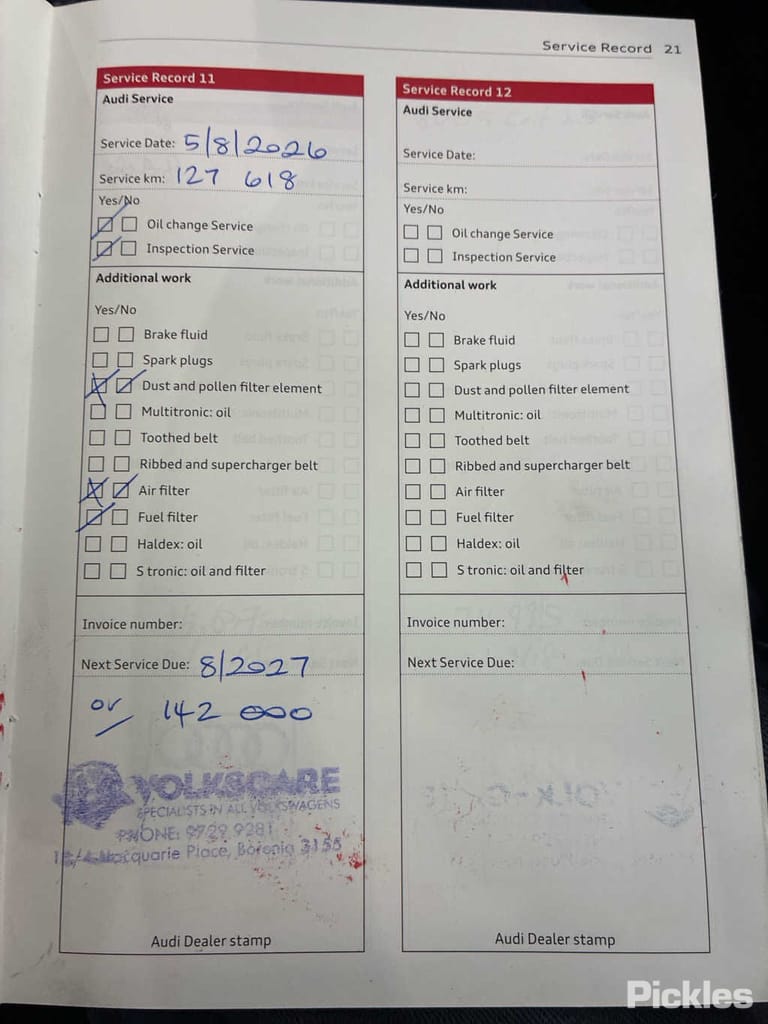 Service Record 21
Service Record 11
Audi Service
Service Date: 5/8/2026
Service km: 127 618
Yes/No
Oil change Service
Inspection Service
Additional work
Yes/No
Brake fluid
Spark plugs
Dust and pollen filter element
Multitronic: oil
Toothed belt
Ribbed and supercharger belt
Air filter
Fuel filter
Haldex: oil
S tronic: oil and filter
Invoice number:
Next Service Due: 8/2027
or 142 000
VOLKSCARE
SPECIALISTS IN ALL VOLKSWAGENS
PHONE: 9729 9281
Macquarie Place, Boronia 3155
Audi Dealer stamp
Service Record 12
Audi Service
Service Date:
Service km:
Yes/No
Oil change Service
Inspection Service
Additional work
Yes/No
Brake fluid
Spark plugs
Dust and pollen filter element
Multitronic: oil
Toothed belt
Ribbed and supercharger belt
Air filter
Fuel filter
Haldex: oil
S tronic: oil and filter
Invoice number:
Next Service Due:
Audi Dealer stamp
Pickles